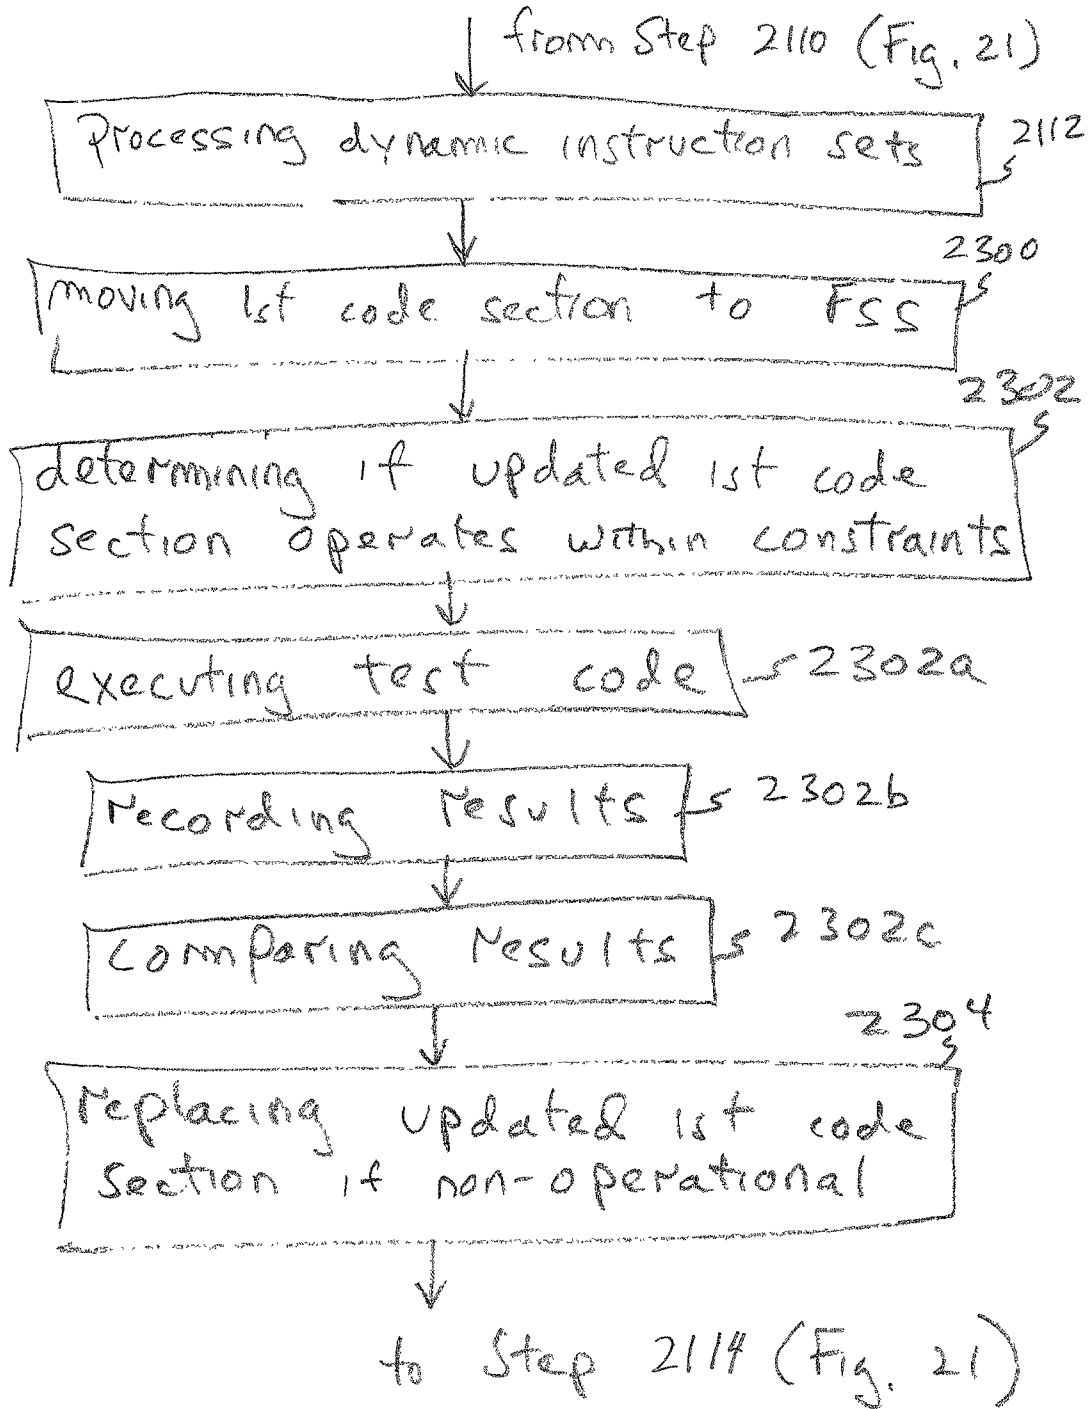 from Step 2110 (Fig. 21)
Processing dynamic instruction sets
2112
2300
moving 1st code section to FSS
2302
determining if updated 1st code
section operates within constraints
executing test code
2302a
recording results
2302b
comparing results
2302c
2304
replacing updated 1st code
section if non-operational
to Step 2114 (Fig. 21)